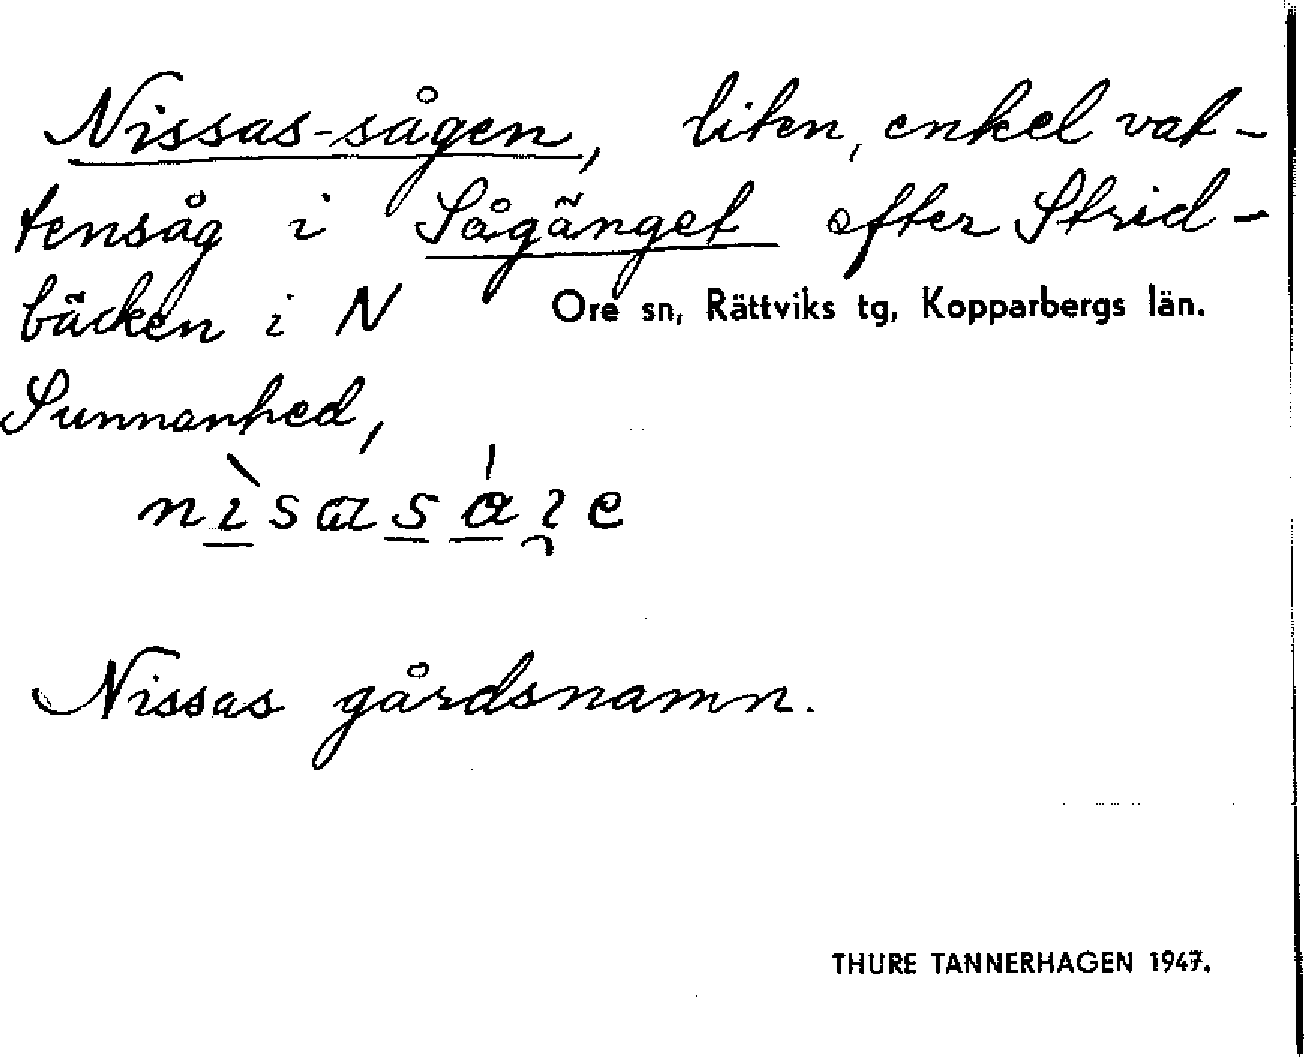 Nissas-sågen, liten, enkel vat-
tensåg i Sågänget efter Strid-
bäcken i N
Ore sn, Rättviks tg, Kopparbergs län.
Sunnanhed,
Nissas gårdsnamn.
THURE TANNERHAGEN 1947.